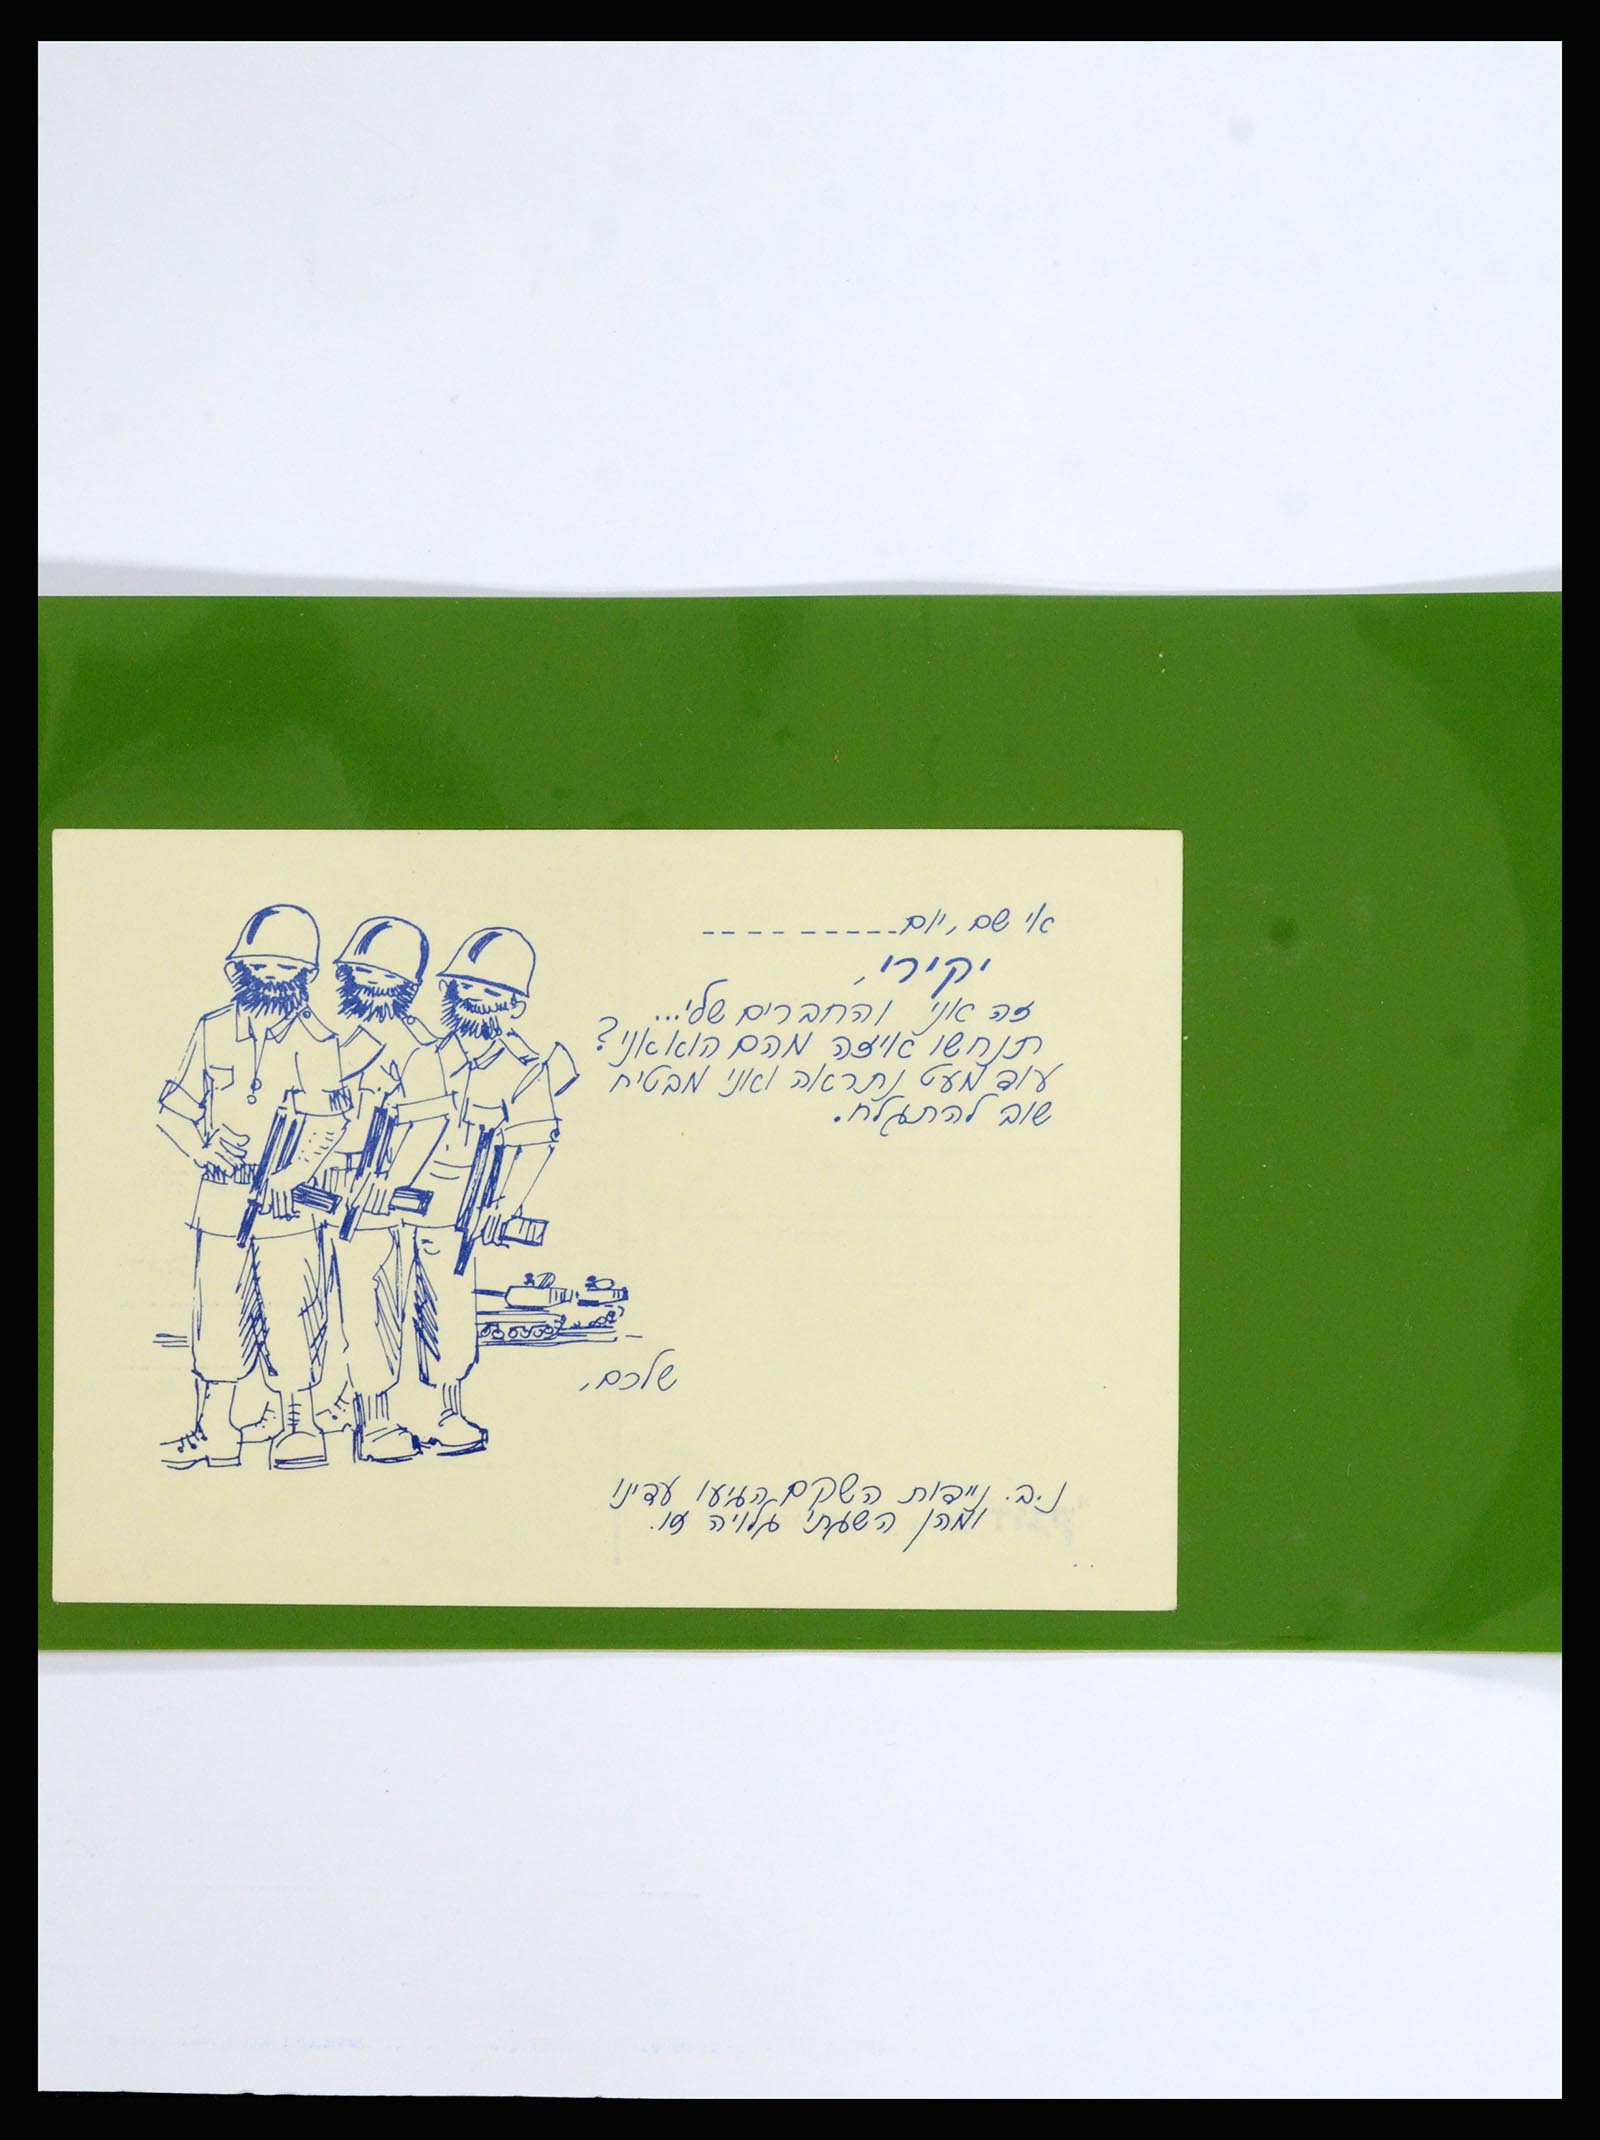 אי שם, יום ----------
יקירי,
זה אני והחברים שלי...
תנחשו איזה מהם הוא אני?
עוד מעט נתראה ואני מבטיח
שוב להתגלח.
שלכם,
נ.ב. ניידות השקם הגיעו עדינו
ומהן השגתי גלויה זו.